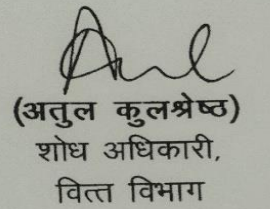 (अतुल कुलश्रेष्ठ)
शोध अधिकारी,
वित्त विभाग